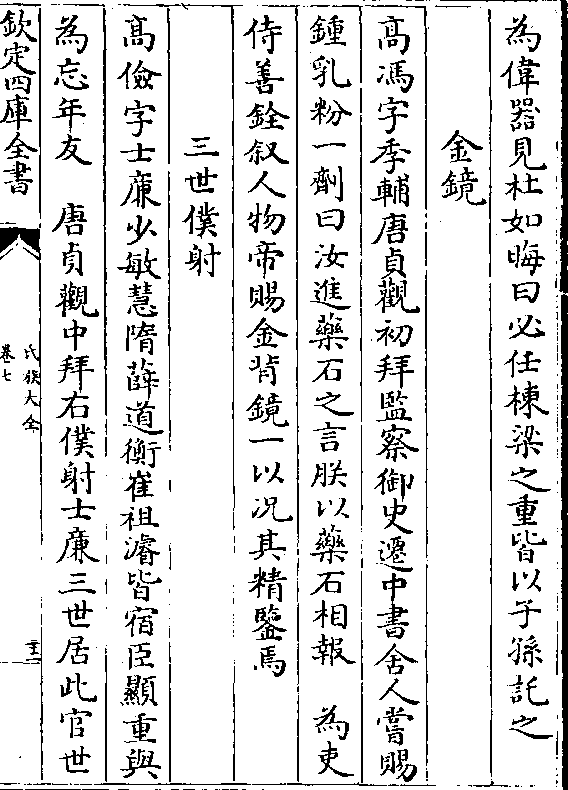 為偉器見杜如晦曰必任棟梁之重皆以子孫託之
金鏡
髙馮字季輔唐貞觀初拜監察御史遷中書舍人嘗賜
鍾乳粉一劑曰汝進藥石之言朕以藥石相報　為吏
侍善銓叙人物帝賜金背鏡一以况其精鑒焉
三世僕射
髙儉字士廉少敏慧隋薛道衡崔祖濬皆宿臣顯重與
為忘年友　唐貞觀中拜右僕射士廉三世居此官世
欽定四庫全書
氏族大全
卷七